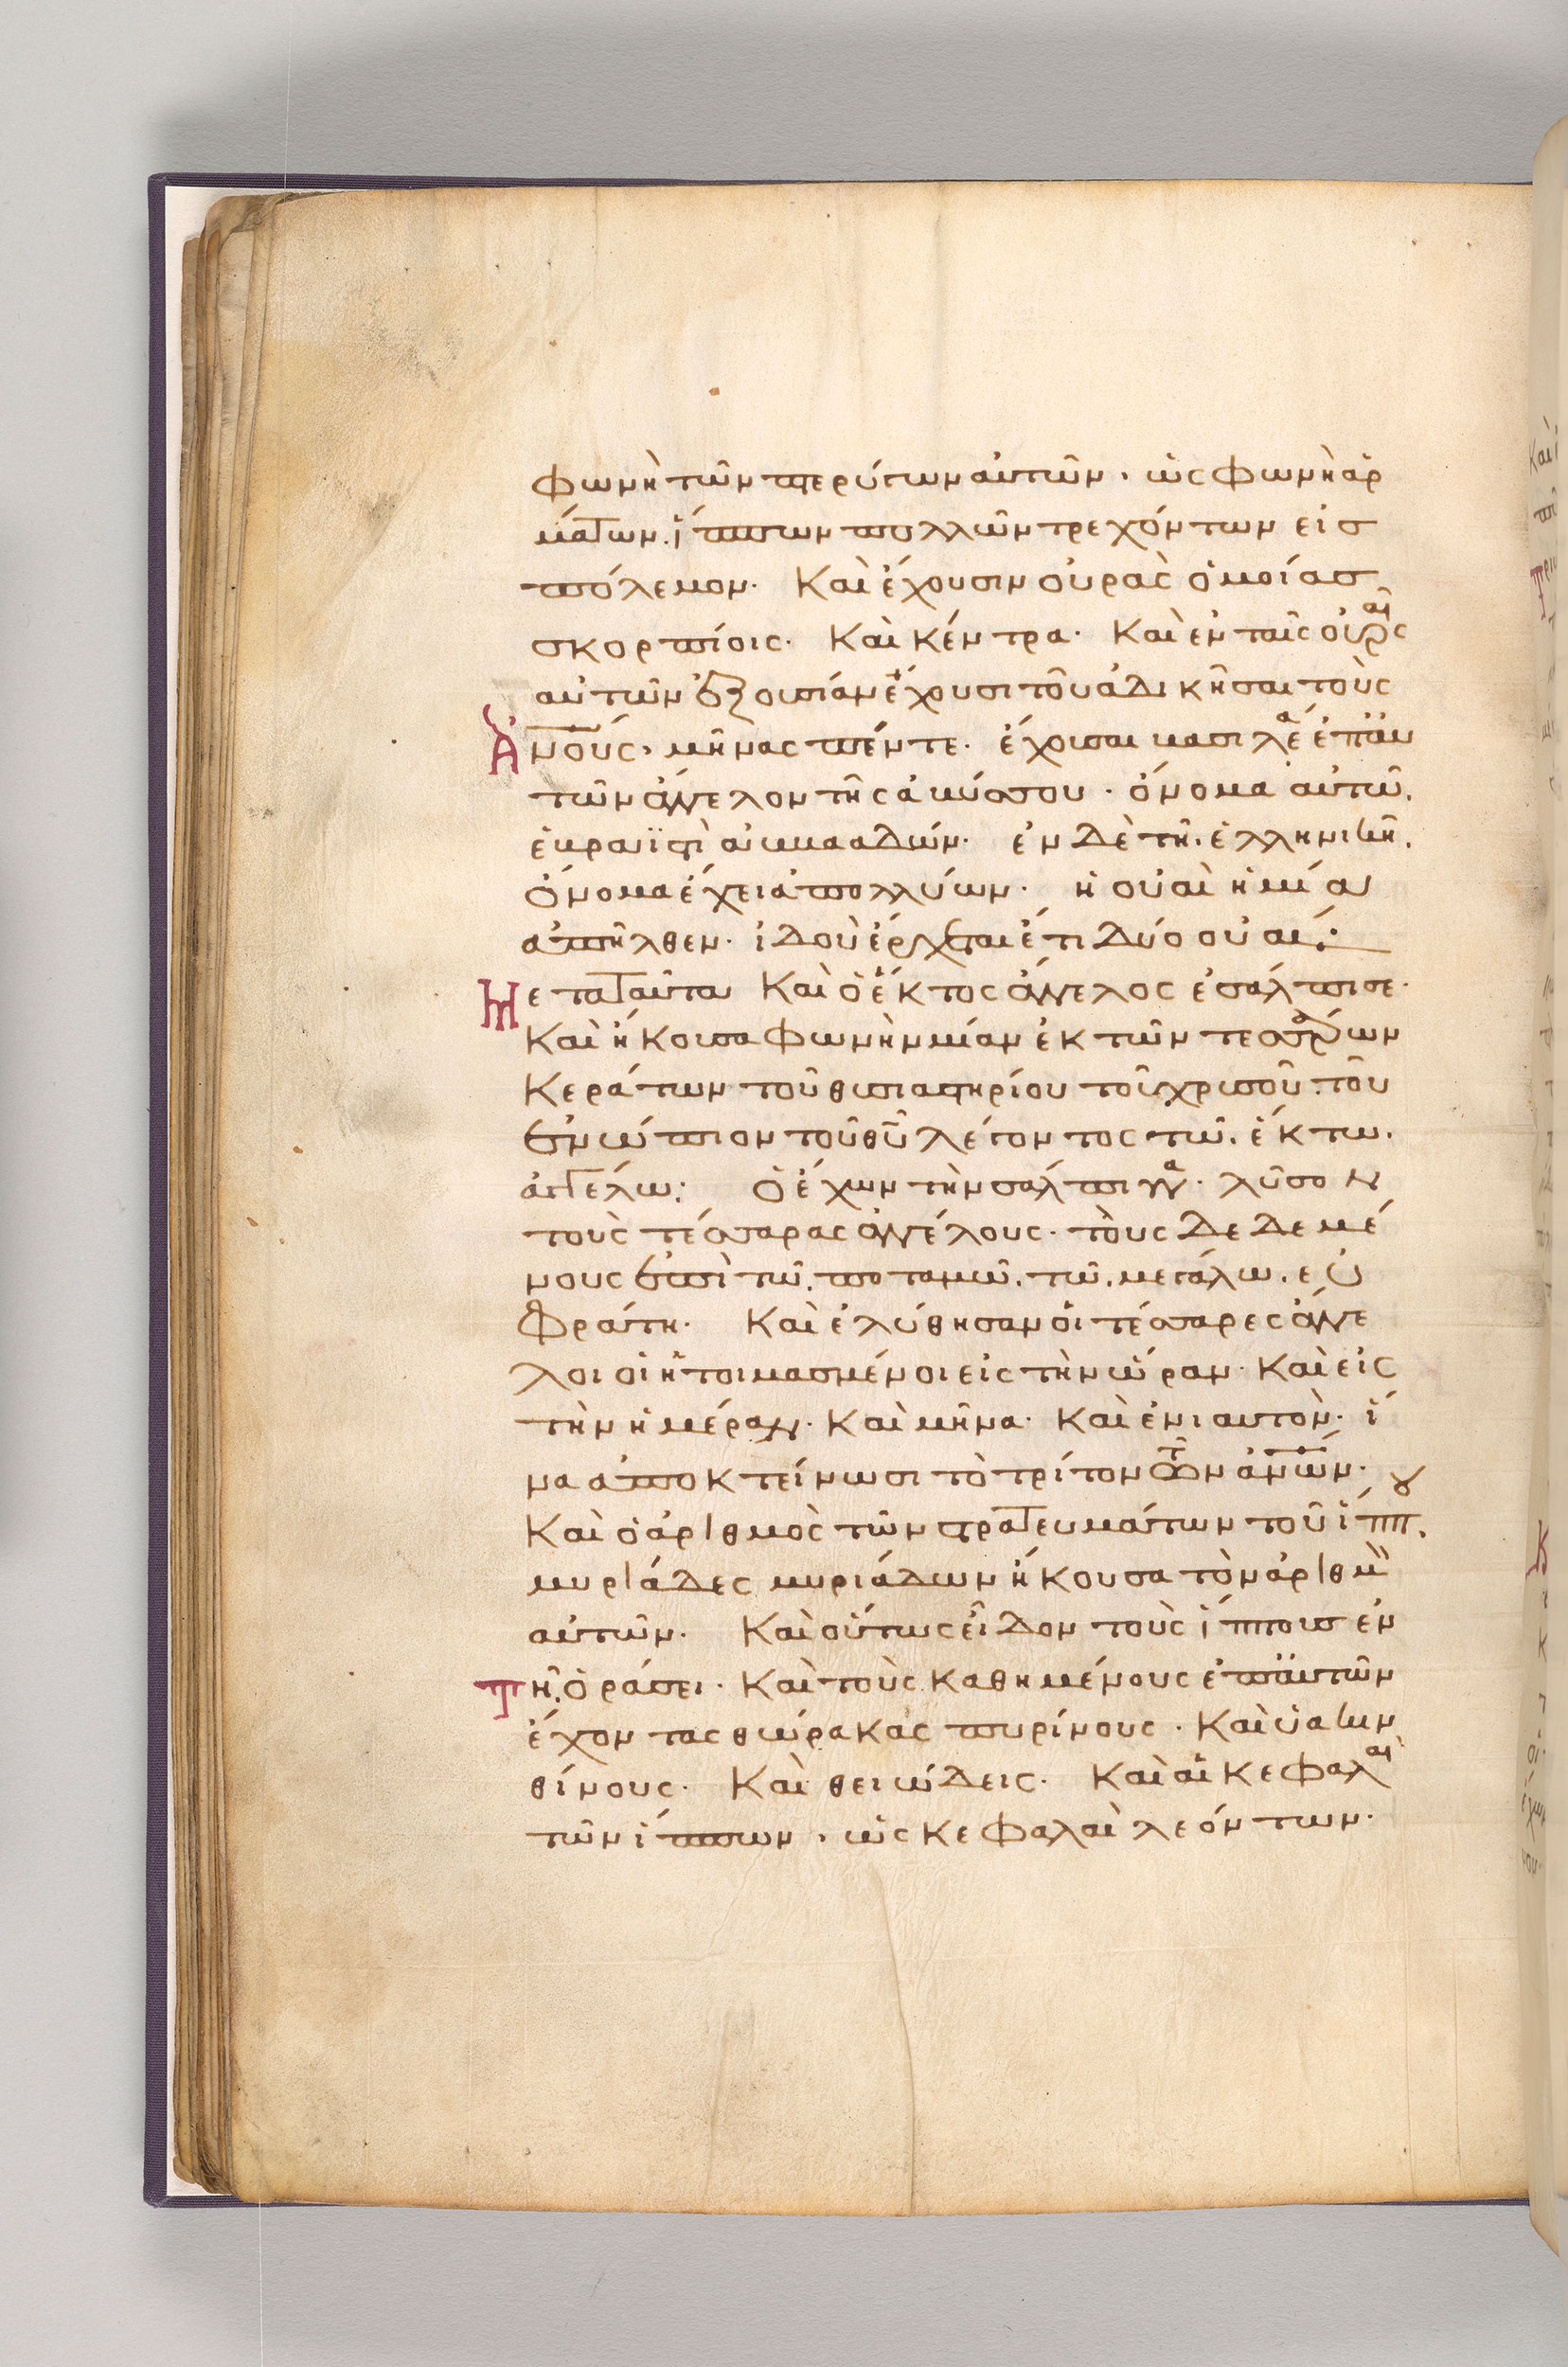 φωνὴ τῶν πτερύγων αὐτῶν · ὡς φωνὴ ἁρ
μάτων · ἵππων πολλῶν τρεχόντων εἰσ
πόλεμον · Καὶ ἔχουσιν οὐρὰς ὁμοίασ
σκορπίοις · Καὶ κέντρα · Καὶ ἐν ταῖς οὐραῖς
αὐτῶν ἐξουσίαν ἔχουσι τοῦ ἀδικῆσαι τοὺς
Ἀνους · μῆνας πέντε · ἔχουσαι βασιλέα ἐπαυ
τῶν ἄγγελον τῆς ἀβύσσου · ὄνομα αὐτῶ ·
ἑβραϊστὶ ἀββααδών · ἐν δὲ τῆ ἑλληνικῆ ·
Ὄνομα ἔχει ἀπολλύων · ἡ οὐαὶ ἡ μία
ἀπῆλθεν · ἰδοὺ ἔρχεται ἔτι δύο οὐαί :
Μετὰ ταῦτα Καὶ ὁ ἕκτος ἄγγελος ἐσάλπισε ·
Καὶ ἤκουσα φωνὴν μίαν ἐκ τῶν τεσσάρων
Κεράτων τοῦ θυσιαστηρίου τοῦ χρυσοῦ · τοῦ
ἐνώπιον τοῦ θυ λέγοντος τῶ ἕκτω ·
ἀγγέλω : Ὁ ἔχων τὴν σάλπιγγα · λῦσον
τοὺς τέσσαρας ἀγγέλους · τοὺς δεδεμέ
νους ἐπὶ τῶ ποταμῶ τῶ μεγάλω εὐ
φράτη · Καὶ ἐλύθησαν οἱ τέσσαρες ἄγγε
λοι οἱ ἡτοιμασμένοι εἰς τὴν ὥραν · Καὶ εἰς
τὴν ἡμέραν · Καὶ μῆνα · Καὶ ἐνιαυτὸν · ἵ
να ἀποκτείνωσι τὸ τρίτον τῶν ἀνων ·
Καὶ ὁ ἀριθμὸς τῶν στρατευμάτων τοῦ ἵππ ·
μυριάδες μυριάδων ἤκουσα τὸν ἀριθμ
αὐτῶν · Καὶ οὕτως εἶδον τοὺς ἵππουσ ἐν
Τῆ ὁράσει · Καὶ τοὺς καθημένους ἐπ αὐτῶν
ἔχοντας θώρακας πυρίνους · Καὶ ὑακιν
θίνους · Καὶ θειώδεις · Καὶ αἱ κεφαλαὶ
τῶν ἵππων · ὡς κεφαλαὶ λεόντων ·